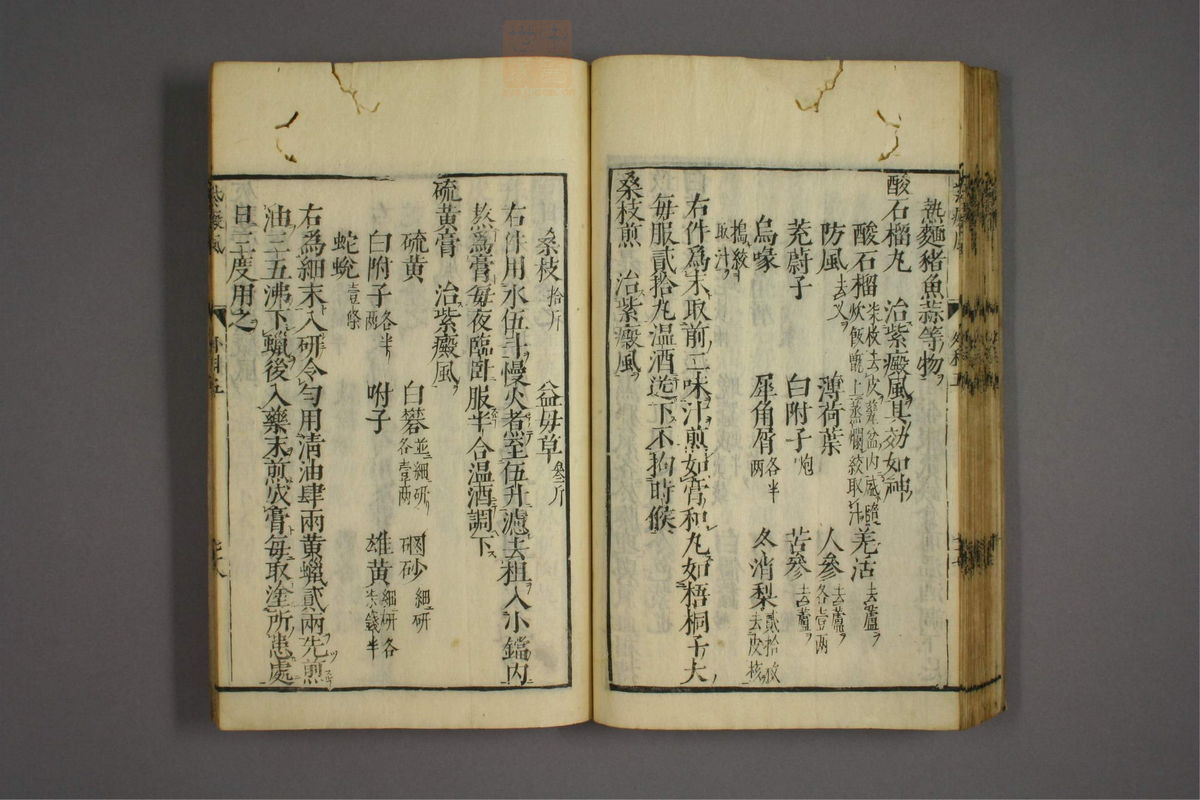 熱麵豬魚蒜等物
酸石榴丸　治紫癜風其効如神
酸石榴 柒枚去皮 盆内盛隨炊飯甑上蒸爛絞取汁　羌活 去蘆
防風 去叉　薄荷葉　人參 去蘆各壹兩
茺蔚子　白附子 炮　苦參 去蘆
烏喙　犀角屑 各半兩　冬消梨 貳拾枚去皮核
搗絞取汁
右件為末取前二味汁煎如膏和丸如梧桐子大
每服貳拾丸温酒送下不拘時候
桑枝煎　治紫癜風
桑枝 拾斤　益母草 叁斤
右件用水伍斗慢火煮至伍升濾去柤入小鐺内
熬為膏每夜臨臥服半合温酒調下
硫黄膏　治紫癜風
硫黄　白礬 並細研各壹兩　硇砂 細研
白附子 各半兩　附子　雄黄 細研各柒錢半
蛇蛻 壹條
右為細末入研令勻用清油肆兩黄蠟貳兩先煎
油三五沸下蠟後入藥末煎成膏每取塗所患處
日三度用之